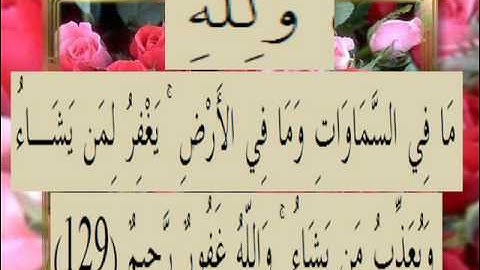 وَلِلَّهِ
مَا فِي السَّمَاوَاتِ وَمَا فِي الْأَرْضِ ۚ يَغْفِرُ لِمَن يَشَـــاءُ
وَيُعَذِّبُ مَن يَشَاءُ ۚ وَاللَّهُ غَفُورٌ رَّحِيمٌ (129)